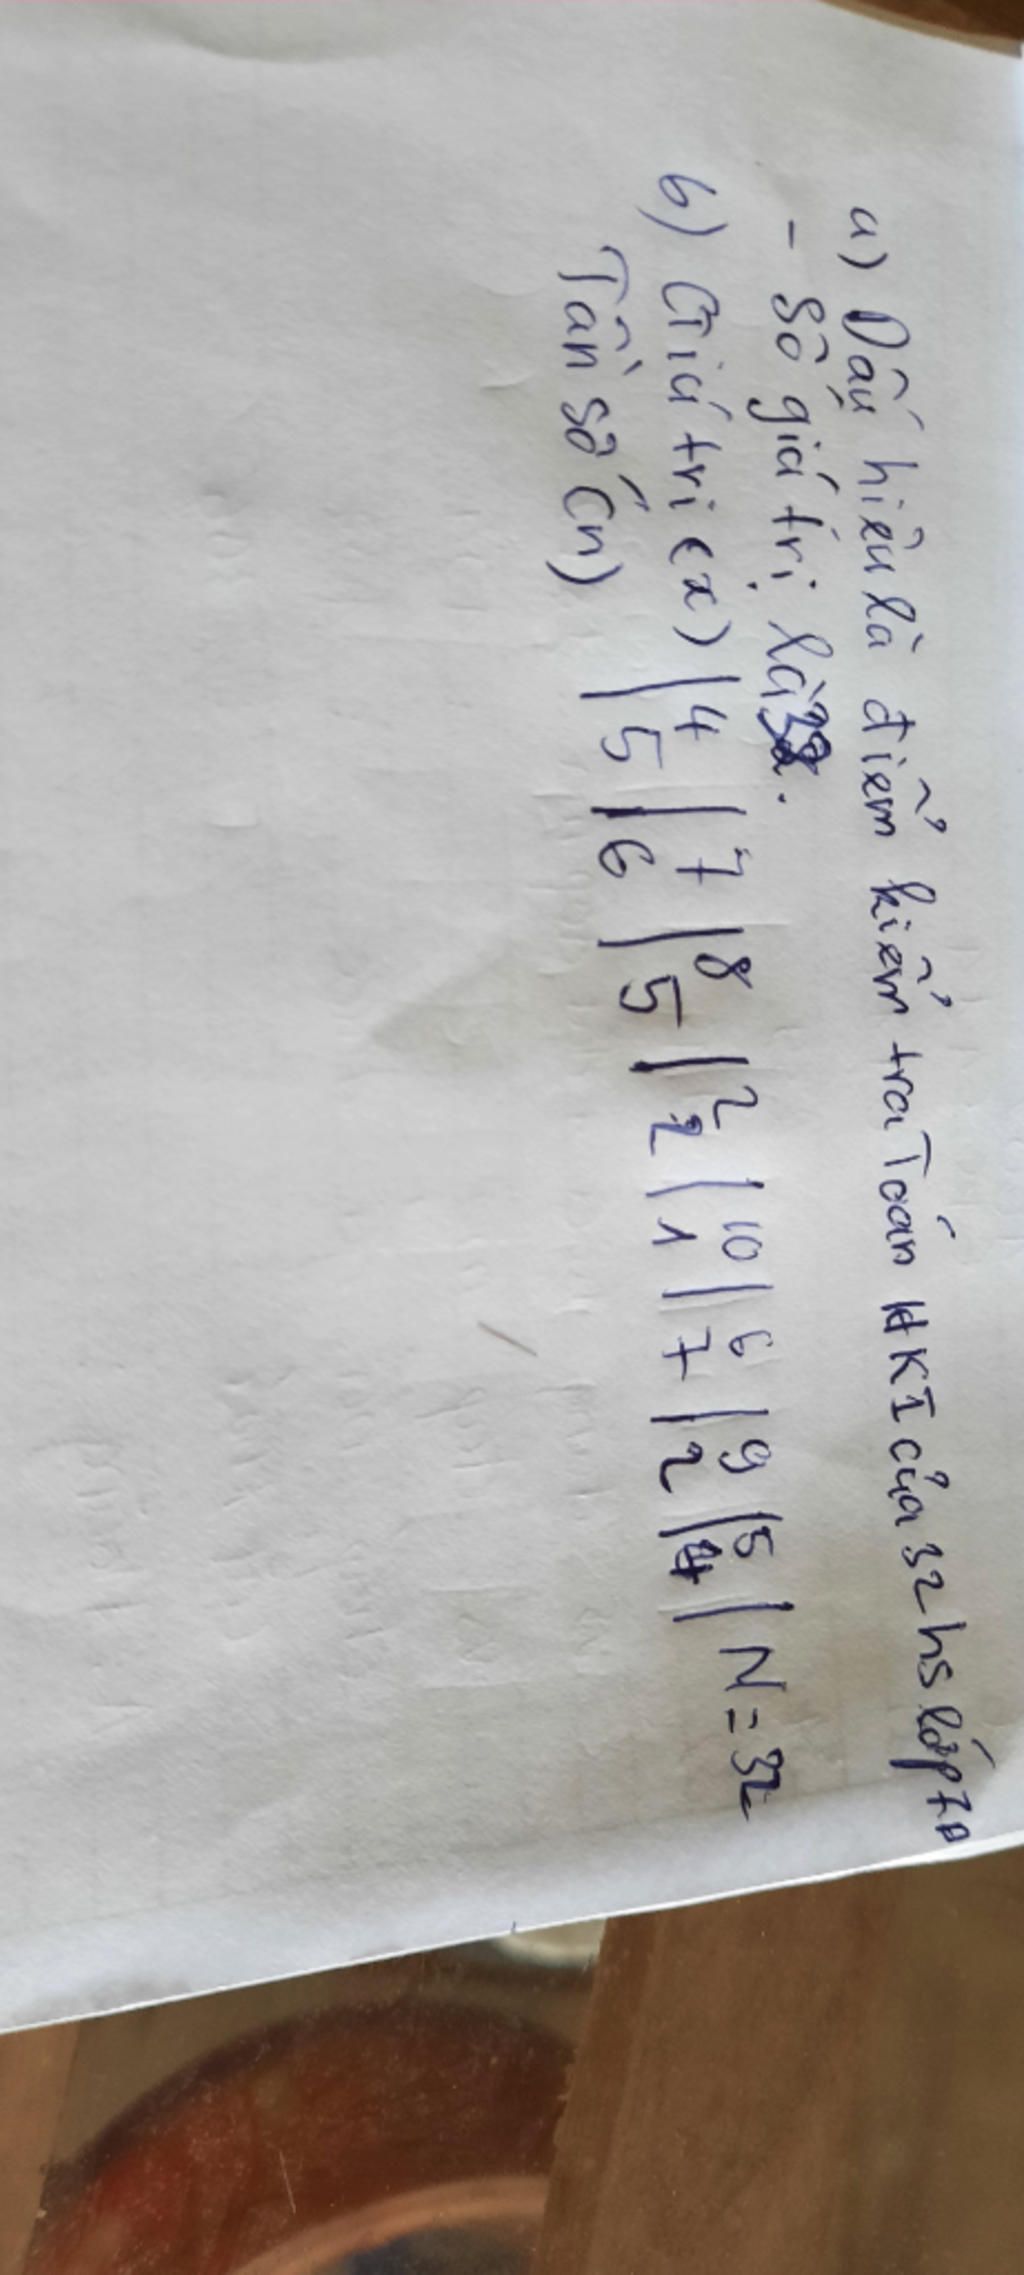 a) Dấu hiệu là điểm kiểm tra Toán HKI của 32 hs lớp 7A
- Số giá trị là 32.
b) Giá trị (x) | 4 | 7 | 8 | 2 | 10 | 6 | 9 | 5 | N = 32
Tần số (n) | 5 | 6 | 5 | 2 | 1 | 7 | 2 | 4 |